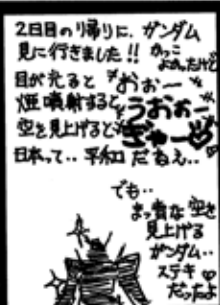 2日目の帰りに、ガンダム
見に行きました!! かっこ
よかったけど
目が光ると "おぉー"
煙噴射すると "うおぉー"
空を見上げると "ぎゃー"
日本って‥平和だねぇ‥
でも‥
まっ青な空を
見上げる
ガンダム‥
ステキ♡
だったよ